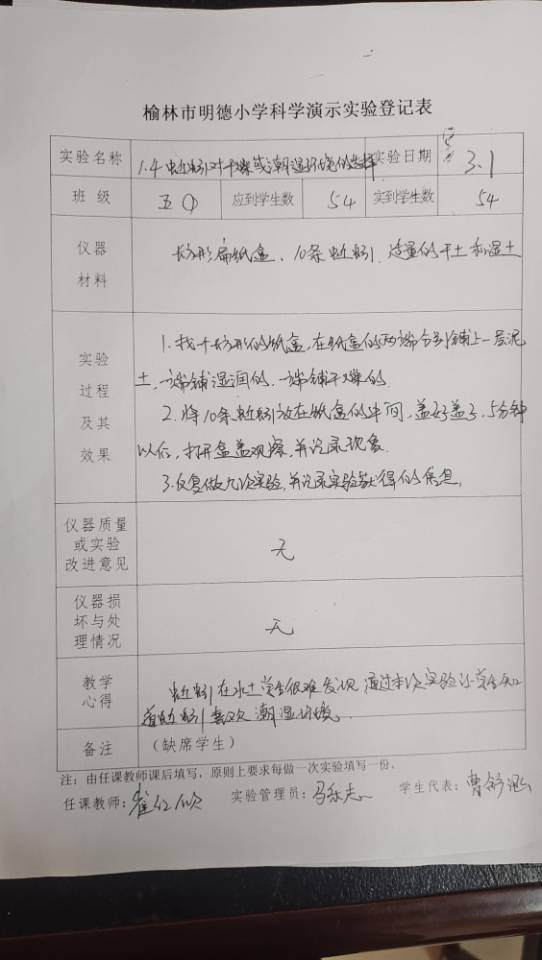 榆林市明德小学科学演示实验登记表
实验名称 1.4 蚯蚓对干燥或潮湿环境的选择 实验日期 3.1
班级 五① 应到学生数 54 实到学生数 54
仪器材料 长方形扁纸盒、10条蚯蚓、适量的干土和湿土
实验过程及其效果
1.找个长方形的纸盒,在纸盒的两端分别铺上一层泥
土,一端铺湿润的,一端铺干燥的.
2.将10条蚯蚓放在纸盒的中间,盖好盖子,5分钟
以后,打开盒盖观察,并记录现象.
3.反复做几次实验,并记录实验获得的信息,
仪器质量或实验改进意见 无
仪器损坏与处理情况 无
教学心得 蚯蚓在水土学生很难发现 通过本次实验让学生知
道蚯蚓喜欢潮湿环境.
备注 (缺席学生)
注:由任课教师课后填写,原则上要求每做一次实验填写一份。
任课教师: 实验管理员: 学生代表: